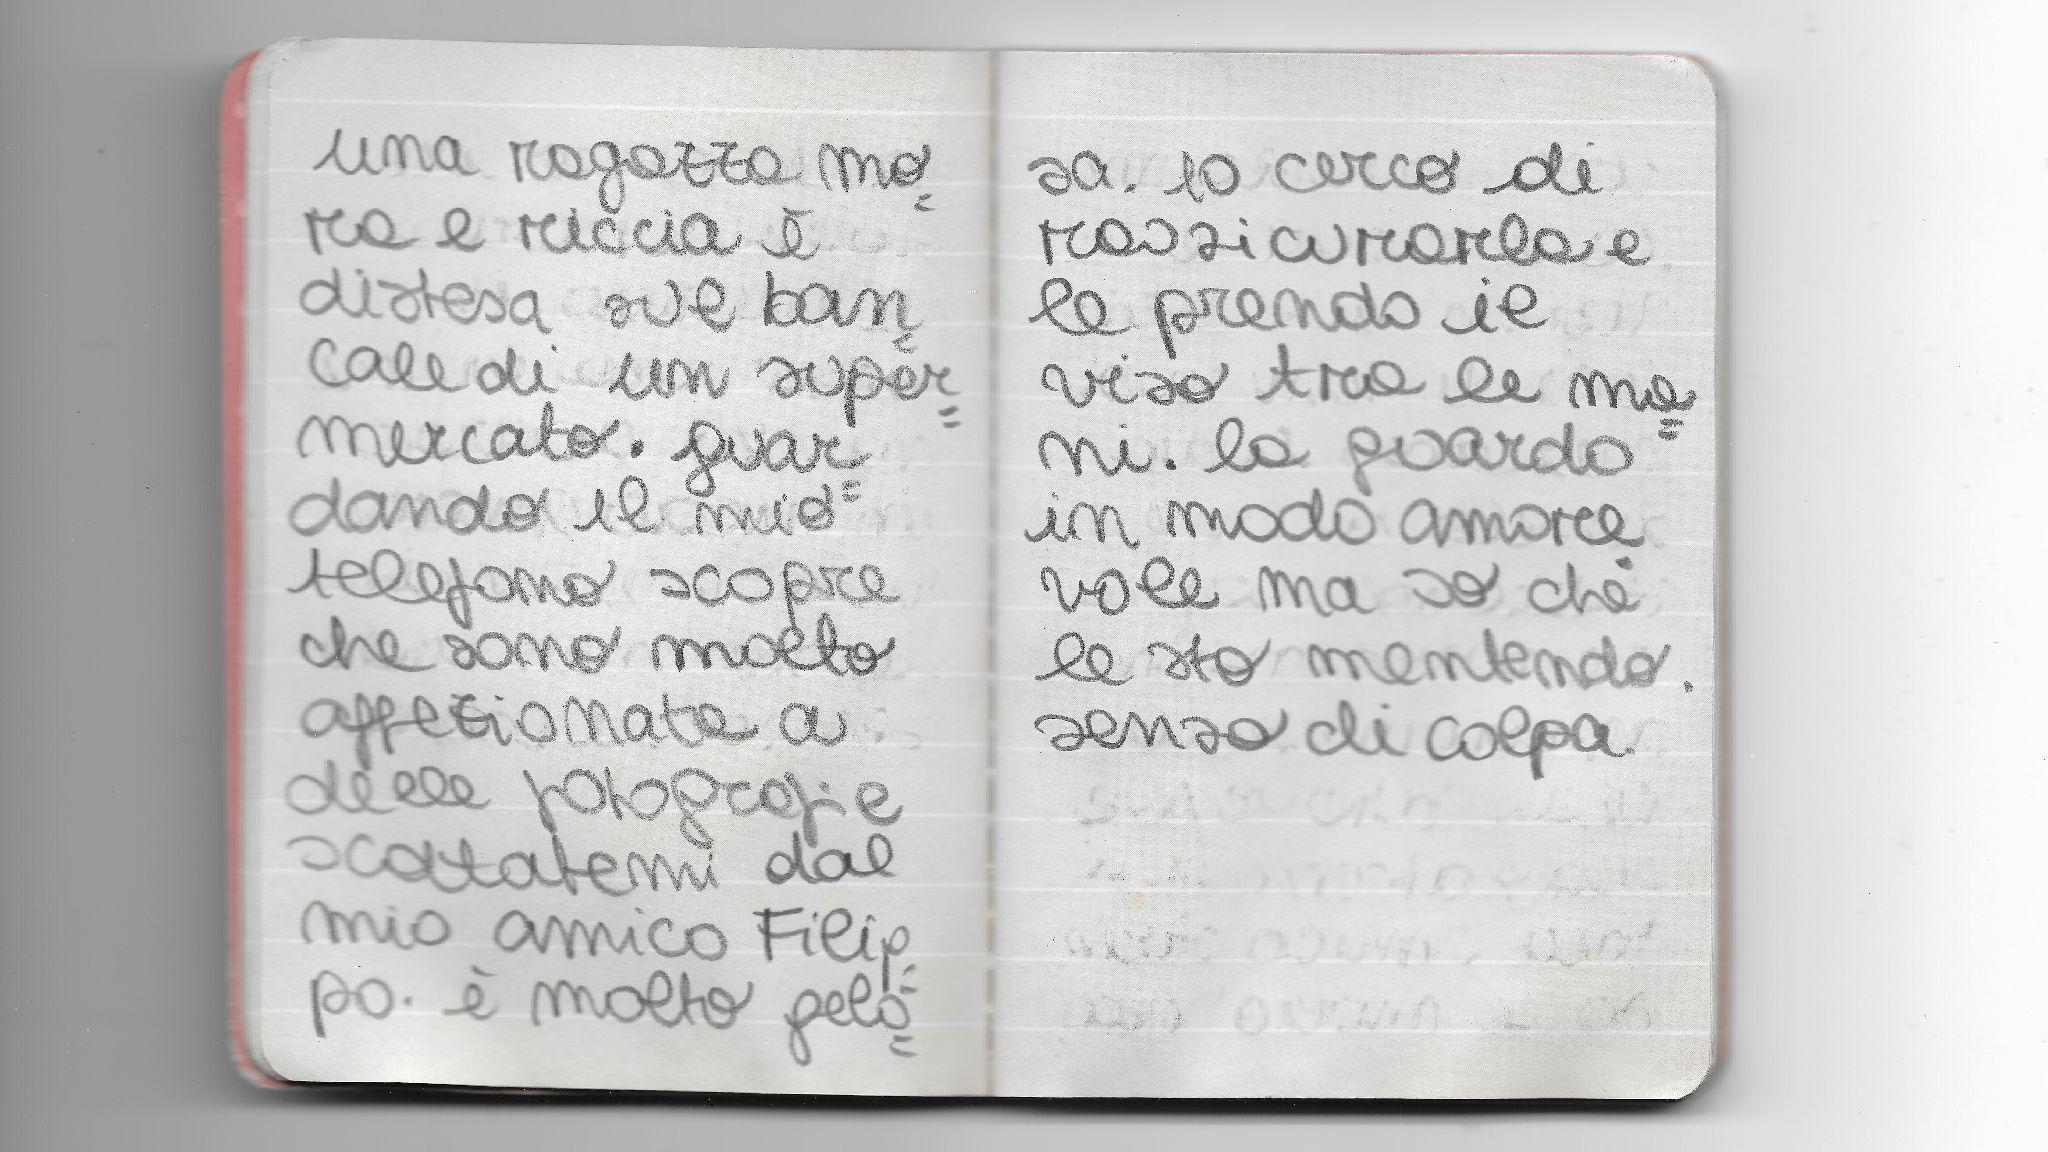 una ragazza mo=
ra e riccia è
distesa sul ban=
cale di un super=
mercato. guar=
dando il mio
telefono scopre
che sono molto
affezionata a
delle fotografie
scattatemi dal
mio amico Filip=
po. è molto gelo=
sa. Io cerco di
rassicurarla e
le prendo il
viso tra le ma=
ni. la guardo
in modo amore
vole ma so che
le sto mentendo.
senso di colpa.